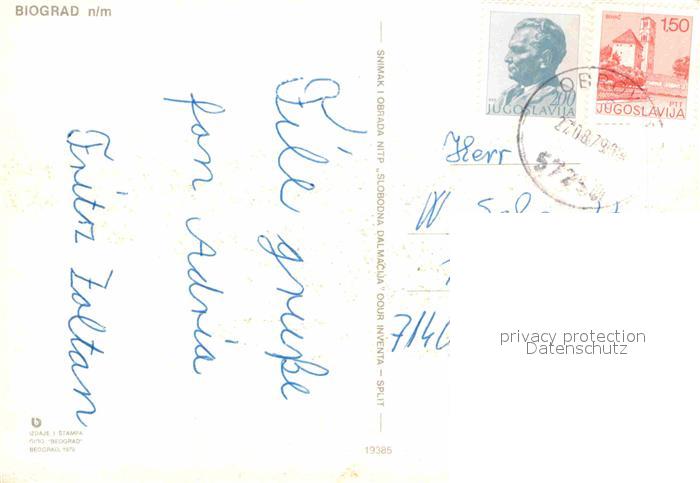 BIOGRAD n/m
File grüße
fon Adria
Fritz Zoltan
SNIMAK I OBRADA NITP „SLOBODNA DALMACIJA" OOUR INVENTA — SPLIT
IZDAJE I ŠTAMPA
"BEOGRAD"
BEOGRAD, 1979
19385
2.00
JUGOSLAVIJA
BIHAĆ
1.50
PTT
JUGOSLAVIJA
22.08.79
Herr
W.
privacy protection
Datenschutz